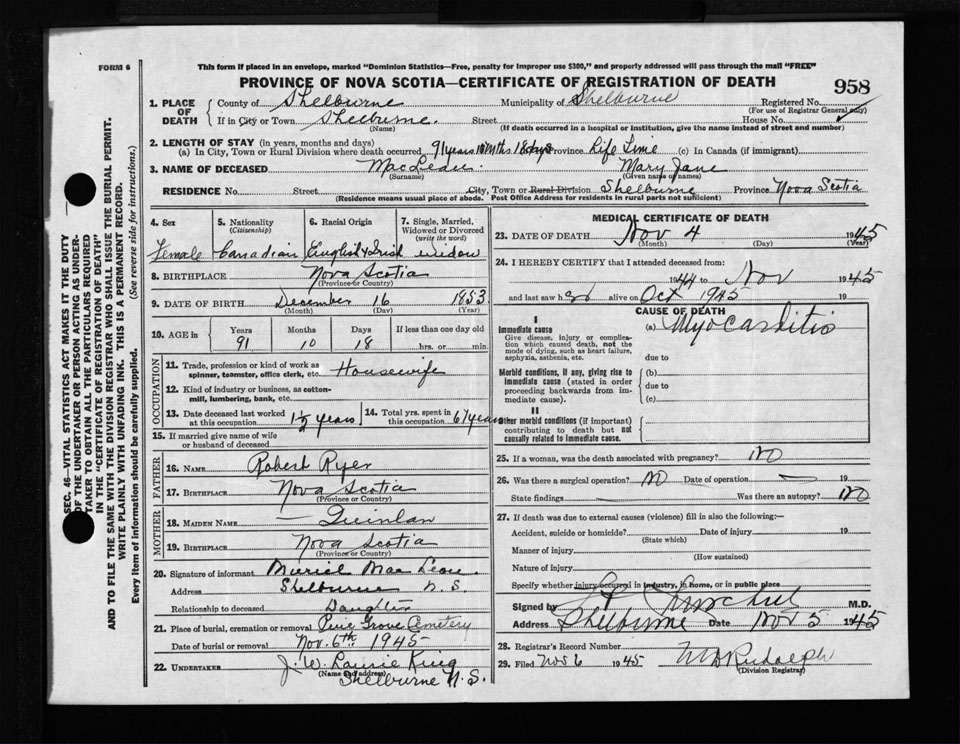 FORM 6
This form if placed in an envelope, marked "Dominion Statistics—Free, penalty for improper use $300," and properly addressed will pass through the mail "FREE"
PROVINCE OF NOVA SCOTIA—CERTIFICATE OF REGISTRATION OF DEATH
958
1. PLACE OF DEATH
County of Shelburne Municipality of Shelburne Registered No.
(For use of Registrar General only)
If in City or Town Shelburne Street House No.
(Name) (If death occurred in a hospital or institution, give the name instead of street and number)
2. LENGTH OF STAY (in years, months and days)
(a) In City, Town or Rural Division where death occurred 91 years 10 mths 18 days Province Life Time (c) In Canada (if immigrant)
3. NAME OF DECEASED Mac Leod Mary Jane
(Surname) (Given name or names)
RESIDENCE No. Street City, Town or Rural Division Shelburne Province Nova Scotia
(Residence means usual place of abode. Post Office Address for residents in rural parts not sufficient)
4. Sex
Female
5. Nationality
(Citizenship)
Canadian
6. Racial Origin
English & Irish
7. Single, Married, Widowed or Divorced
(write the word)
widow
8. BIRTHPLACE Nova Scotia
(Province or Country)
9. DATE OF BIRTH December 16 1853
(Month) (Day) (Year)
10. AGE in Years Months Days If less than one day old
91 10 18 hrs. or min.
OCCUPATION
11. Trade, profession or kind of work as spinner, teamster, office clerk, etc. Housewife
12. Kind of industry or business, as cotton-mill, lumbering, bank, etc.
13. Date deceased last worked at this occupation 1½ years
14. Total yrs. spent in this occupation 67 years
15. If married give name of wife or husband of deceased
FATHER
16. NAME Robert Ryer
17. BIRTHPLACE Nova Scotia
(Province or Country)
MOTHER
18. MAIDEN NAME — Quinlan
19. BIRTHPLACE Nova Scotia
(Province or Country)
20. Signature of informant Muriel Mac Leod
Address Shelburne N. S.
Relationship to deceased Daughter
21. Place of burial, cremation or removal Pine Grove Cemetery
Date of burial or removal Nov. 6th 1945
22. UNDERTAKER J. W. Laurie King
(Name and address)
Shelburne N. S.
MEDICAL CERTIFICATE OF DEATH
23. DATE OF DEATH Nov 4 1945
(Month) (Day) (Year)
24. I HEREBY CERTIFY that I attended deceased from:
1944 to Nov 1945
and last saw h alive on Oct 1945 19
CAUSE OF DEATH
I
Immediate cause (a) Myocarditis
Give disease, injury or complication which caused death, not the mode of dying, such as heart failure, asphyxia, asthenia, etc.
due to
Morbid conditions, if any, giving rise to immediate cause (stated in order proceeding backwards from immediate cause).
(b)
due to
(c)
II
Other morbid conditions (if important) contributing to death but not causally related to immediate cause.
25. If a woman, was the death associated with pregnancy? no
26. Was there a surgical operation? no Date of operation — 19
State findings — Was there an autopsy? no
27. If death was due to external causes (violence) fill in also the following:—
Accident, suicide or homicide? Date of injury 19
(State which)
Manner of injury
(How sustained)
Nature of injury
Specify whether injury occurred in industry, in home, or in public place
Signed by M.D.
Address Shelburne Date Nov 5 1945
28. Registrar's Record Number
29. Filed Nov 6 1945 Rudolph
(Division Registrar)
SEC. 46—VITAL STATISTICS ACT MAKES IT THE DUTY
OF THE UNDERTAKER OR PERSON ACTING AS UNDER-
TAKER TO OBTAIN ALL THE PARTICULARS REQUIRED
IN THE "CERTIFICATE OF REGISTRATION OF DEATH"
AND TO FILE THE SAME WITH THE DIVISION REGISTRAR WHO SHALL ISSUE THE BURIAL PERMIT.
WRITE PLAINLY WITH UNFADING INK. THIS IS A PERMANENT RECORD.
Every item of information should be carefully supplied. (See reverse side for instructions.)